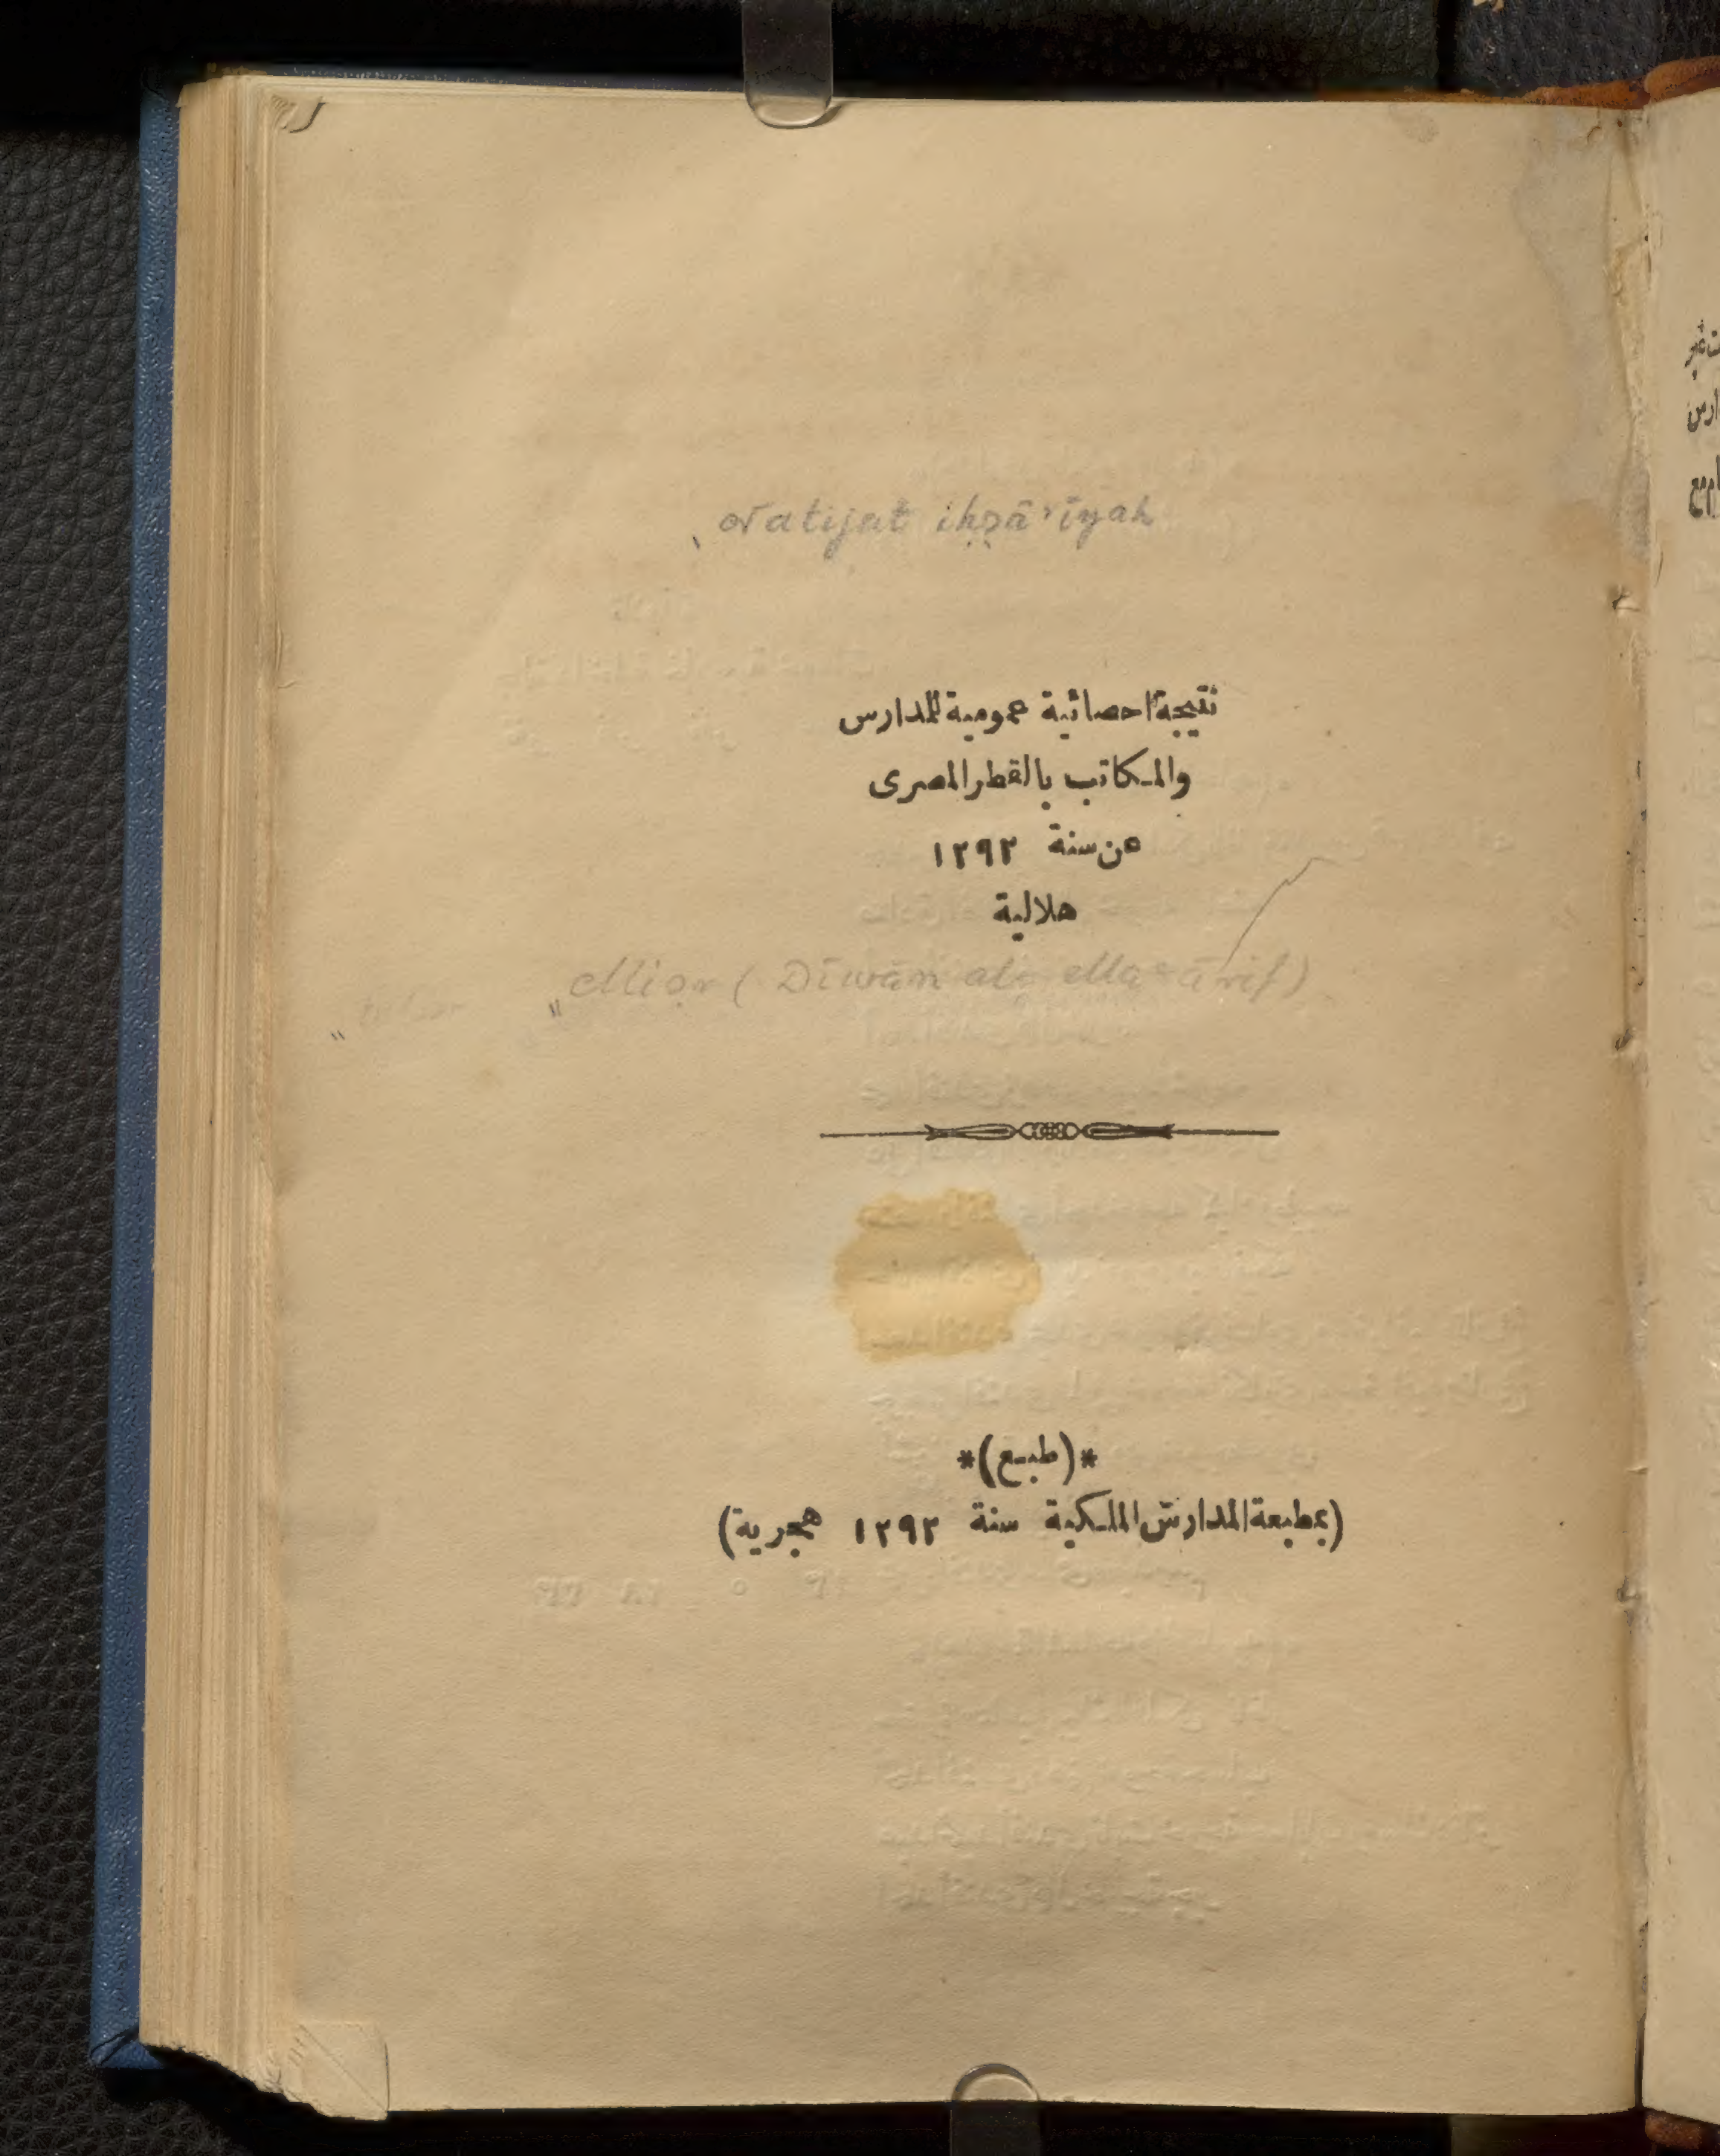 Natijat iḥṣā'īyah
نتيجة احصائية عمومية للمدارس
والمكاتب بالقطر المصرى
عن سنة ١٢٩٢
هلالية
Miṣr (Dīwān al-Maʿārif)
*(طبع)*
(بمطبعة المدارس الملكية سنة ١٢٩٢ هجرية)